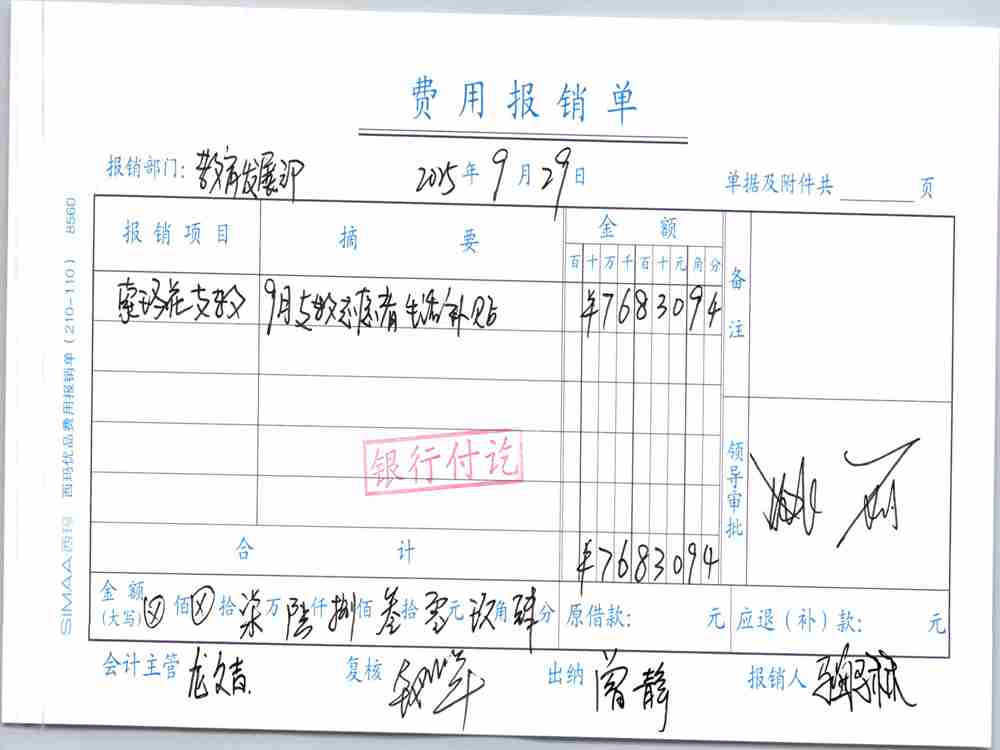 费用报销单
报销部门：教育发展部 2025年9月29日 单据及附件共 页
报销项目 摘要 金额 备注
百十万千百十元角分
支教 9月支教志愿者生活补贴 ¥7683094
银行付讫
领导审批
合计 ¥7683094
金额(大写) ⊗佰⊗拾柒万陆仟捌佰叁拾零元玖角肆分 原借款： 元 应退（补）款： 元
会计主管 龙文吉 复核 出纳 曾静 报销人
SIMAA西玛 西玛优品费用报销单（210-110） 8560